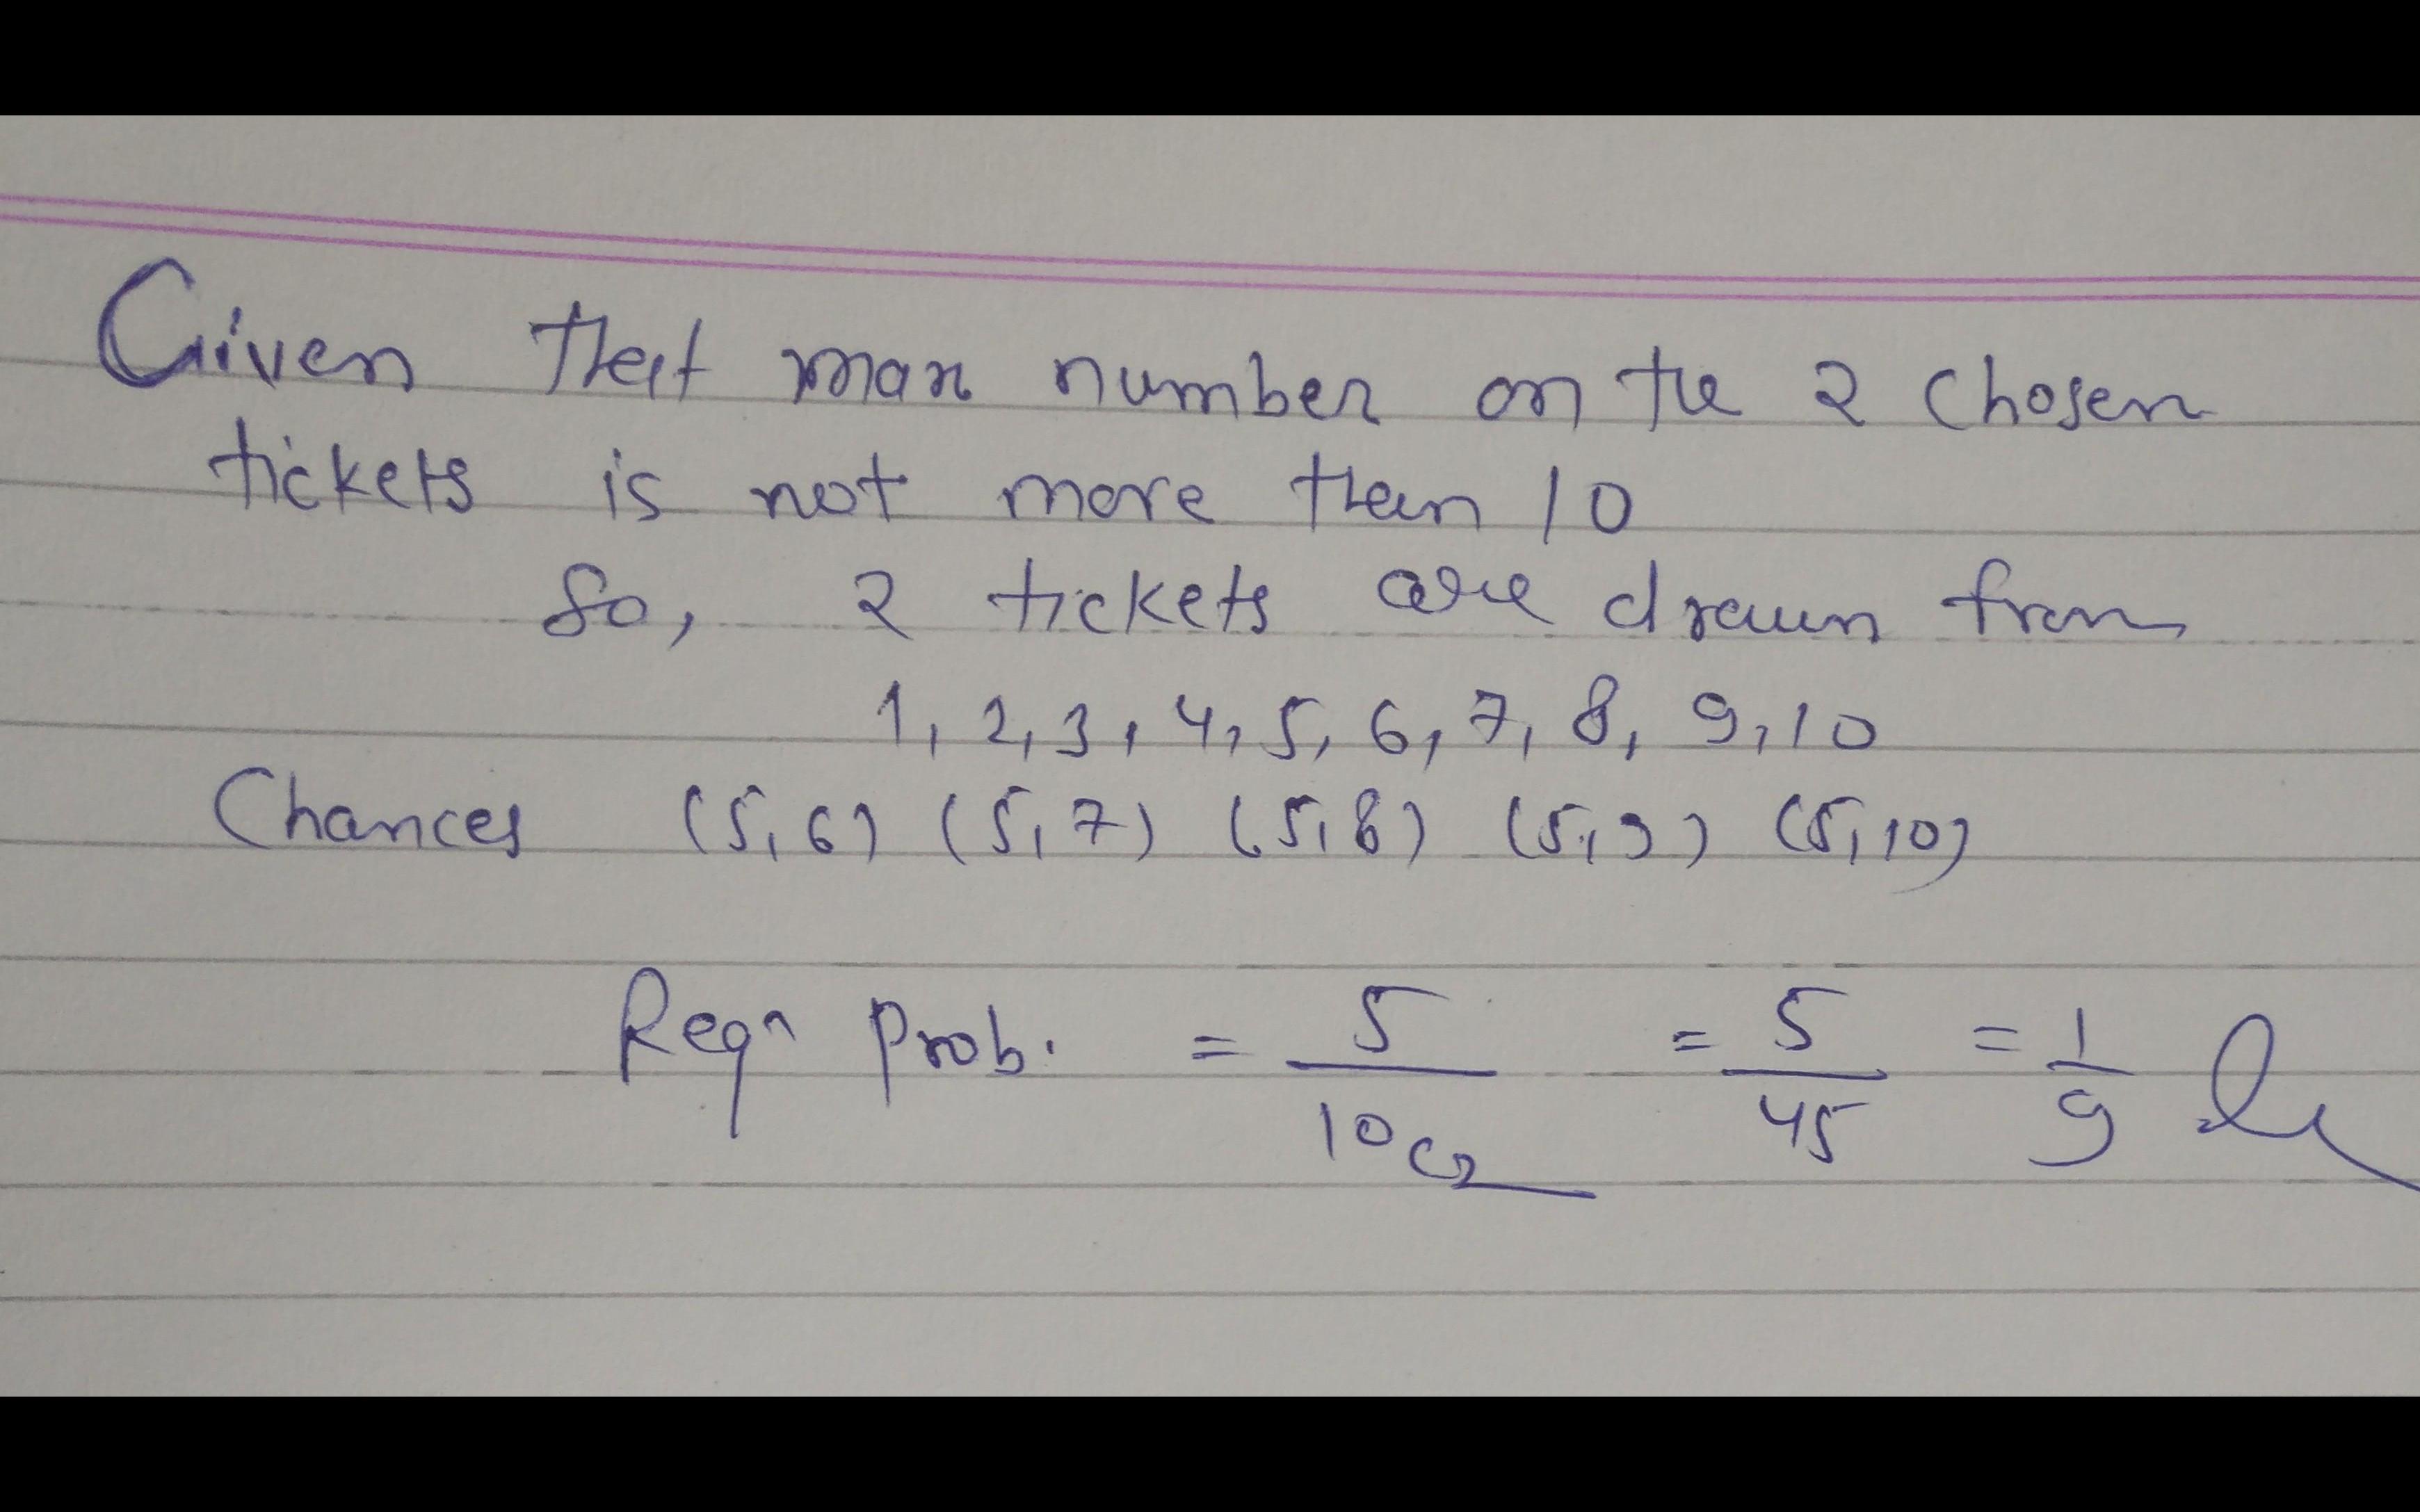 Given that max number on the 2 chosen
tickets is not more than 10
So, 2 tickets are drawn from
1, 2, 3, 4, 5, 6, 7, 8, 9, 10
Chances (5,6) (5,7) (5,8) (5,9) (5,10)
Reqn Prob. = 5/10C2 = 5/45 = 1/9